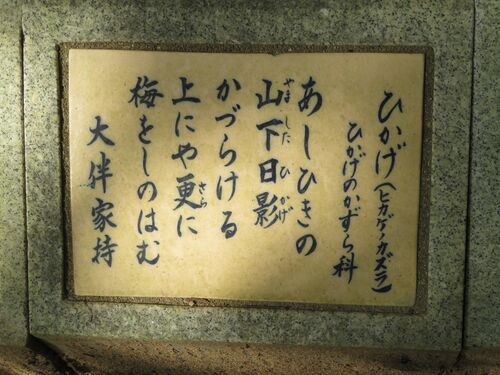 ひかげ(ヒカゲノカズラ)
ひかげのかずら科
あしひきの
山下日影
やました ひ かげ
かづらける
上にや更に
さら
梅をしのはむ
大伴家持